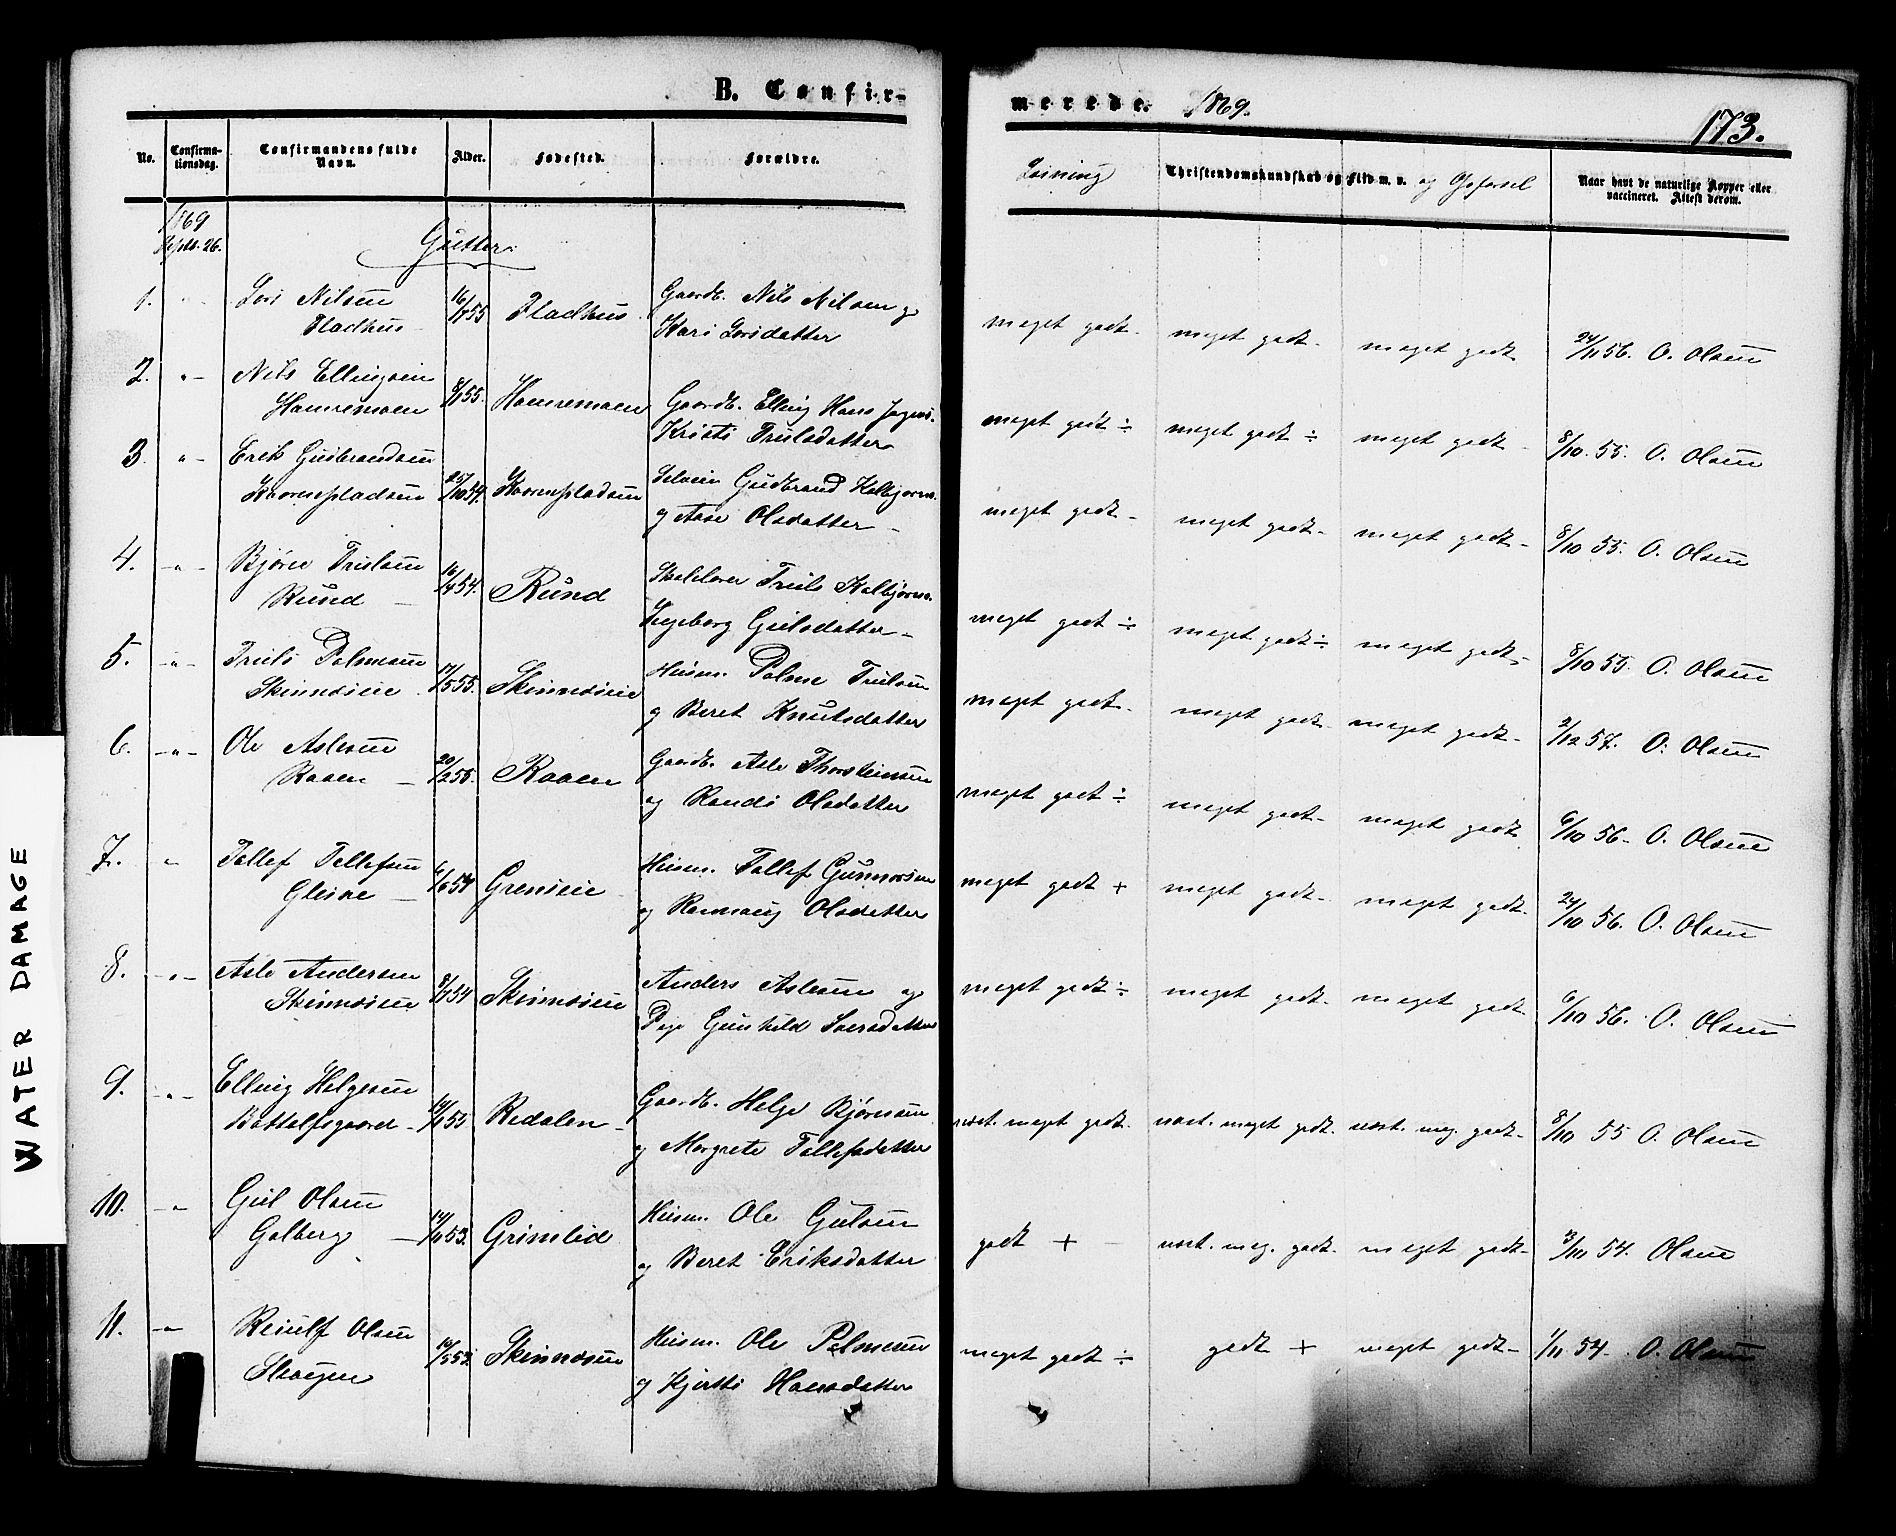 B. Confir-
merede. 1869.
173.
No.
Confirma-
tionsdag.
Confirmandens fulde
Navn.
Alder.
Fødested.
Forældre.
Læsning
Christendomskundskab og Flid m. v. og Opførsel
Naar havt de naturlige Kopper eller
vaccineret. Attest derom.
1869
Septb. 26.
Gutter.
1.
Nilsen
16/1 55
Gaardb. Nils Nilsen og
Kari
meget godt - meget godt - meget godt 24/11 56. O. Olsen
2. " - Nils Ellingsen
Hamremoen
8/1 55.
Hamremoen
Gaardb. Elling Hans
Kristi Trulsdatter
meget godt ÷ meget godt ÷ meget godt - 8/10. 55. O. Olsen
3. " - Erik Gudbrandsen
25/10 54.
Gudbrand Kolbjørns.
og Aase Olsdatter -
meget godt - meget godt - meget godt - 8/10 55. O. Olsen
4. - " - Bjørn Trulsen
Rund -
54.
Rund
Truls Kolbjørns.
Ingeborg Gulsdatter -
meget godt ÷ meget godt ÷ meget godt - 8/10 55. O. Olsen
5. - " - Truls Palmesen
17/5 55.
Husm. Palme Trulsen
og Beret Knutsdatter
meget godt - meget godt - meget godt - 2/12 57. O. Olsen
6. - " - Ole Aslesen
Raaen -
20/2 55.
Raaen
Gaardb. Asle Thorsteinsen
og Randi Olsdatter
meget godt ÷ meget godt - meget godt 6/10 56 - O. Olsen
7. " Tollef Tollefsen
Glesne -
6/6 54
Husm. Tollef Gunnarsen
og Rannaug Olsdatter
meget godt + meget godt - meget godt - 24/10 56. O. Olsen
8. - " - Asle Andersen
54
Anders Aslesen og
Pige Gunhild
meget godt ÷ meget godt - meget godt - 6/10 56. O. Olsen
9. - " - Elling Helgesen
Bottolfsgaard -
55
Redalen -
Gaardb. Helge Bjørnsen
og Margrete Tollefsdatter
næst. meget godt. næst. meget godt. næst. meg. godt - 8/10 55 O. Olsen
10. - " Gul Olsen
Golberg -
53.
Grimelid
Husm. Ole Gulsen
og Beret Eriksdatter
godt + - næst. meg. godt - meget godt - 54. Olsen
11. - " - Reiulf Olsen
Husm. Ole Palmesen
og Kjersti Hansdatter
meget godt ÷ godt + meget godt - 1/11 54 - O. Olsen
WATER DAMAGE